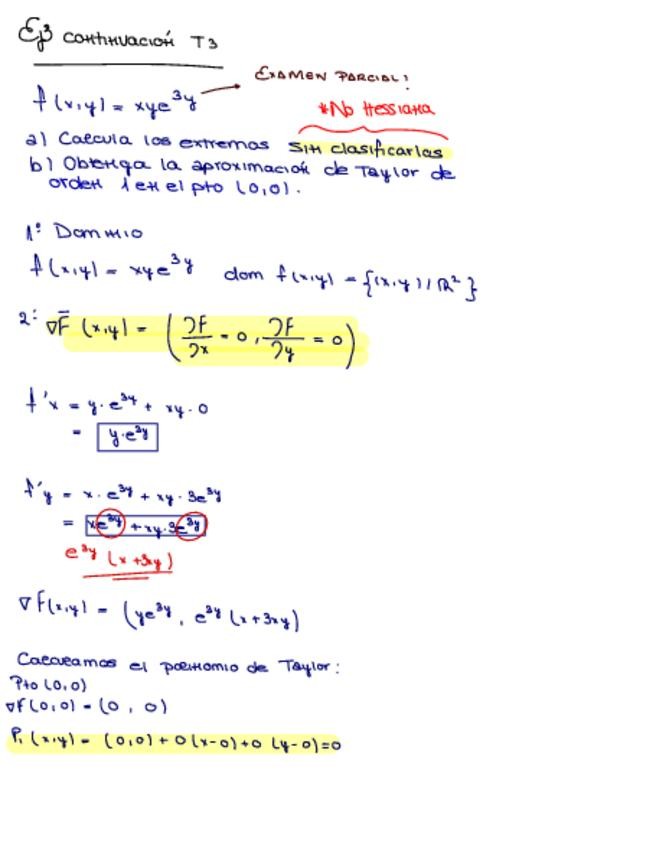 Ej3 continuación T3
Examen parcial!
f(x,y) = xye^3y
*No Hessiana
a) Calcula los extremos sin clasificarlos
b) Obtenga la aproximación de Taylor de
orden 1 en el pto (0,0).
1º Dominio
f(x,y) = xye^3y dom f(x,y) = {(x,y) / R²}
2º ∇F̄ (x,y) = (∂F/∂x = 0, ∂F/∂y = 0)
f'x = y·e^3y + xy·0
= y·e^3y
f'y = x·e^3y + xy·3e^3y
= xe^3y + xy·3e^3y
e^3y (x+3xy)
∇F(x,y) = (ye^3y, e^3y (x+3xy)
Calculamos el polinomio de Taylor:
Pto (0,0)
∇F(0,0) = (0, 0)
P₁ (x,y) = (0,0) + 0(x-0) + 0 (y-0) = 0